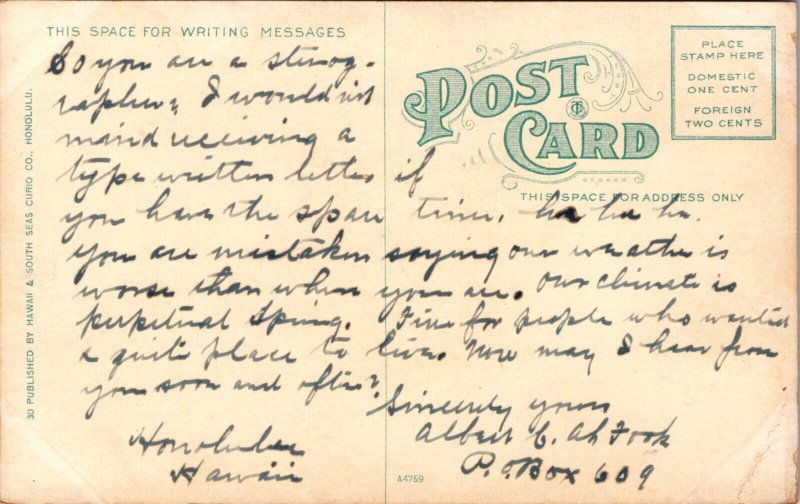 THIS SPACE FOR WRITING MESSAGES
POST CARD
PLACE
STAMP HERE
DOMESTIC
ONE CENT
FOREIGN
TWO CENTS
THIS SPACE FOR ADDRESS ONLY
So you are a stenog-
rapher, I would'nt
mind receiving a
type written letter if
you have the spare time, ha ha ha.
you are mistaken saying our weather is
worse than where you are. Our climate is
perpetual Spring. Fine for people who wanted
a quite place to live. Now may I hear from
you soon and often?
Sincerely yours
Albert C. Ah Fook
P.O. Box 609
Honolulu
Hawaii
30 PUBLISHED BY HAWAII & SOUTH SEAS CURIO CO., HONOLULU.
A4759